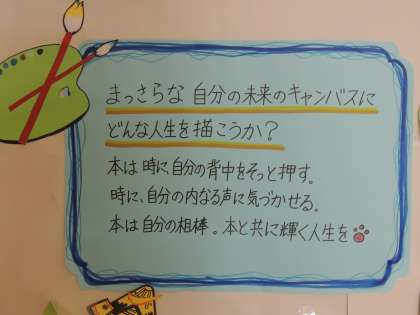 まっさらな 自分の未来のキャンバスに
どんな人生を描こうか？
本は 時に、自分の背中をそっと押す。
時に、自分の内なる声に気づかせる。
本は 自分の相棒。本と共に輝く人生を